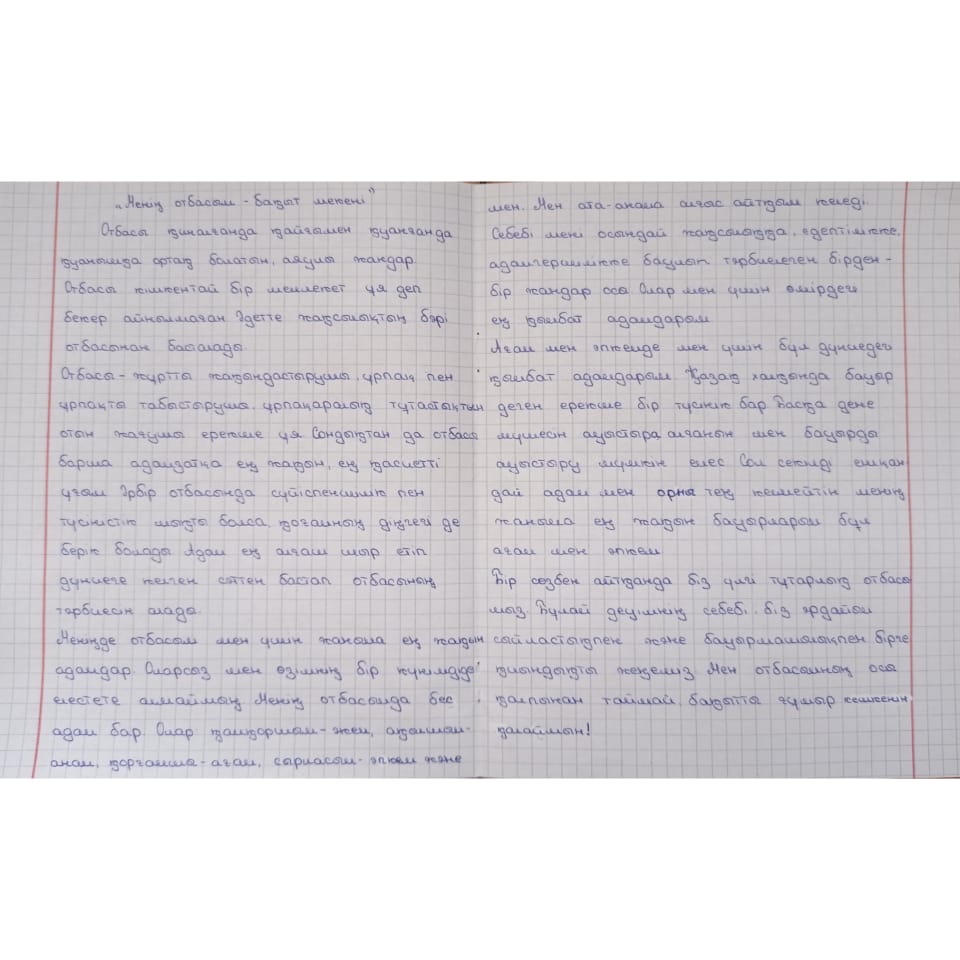 „Менің отбасым - бақыт мекені”
Отбасы қиналғанда қайғымен қуанғанда
қуанышқа ортақ болатын, аяулы жандар.
Отбасы кішкентай бір мемлекет ұя деп
бекер айтылмаған Әдетте жақсылықтың бәрі
отбасынан басталады.
Отбасы - жұртты жақындастырушы, ұрпақ пен
ұрпақты табыстырушы, ұрпақаралық тұтастықтың
отын жағушы ерекше ұя Сондықтан да отбасы
барша адамзатқа ең жақын, ең қасиетті
ұғым Әрбір отбасында сүйіспеншілік пен
түсністік мықты болса, қоғамның діңгегі де
берік болады Адам ең алғаш шыр етіп
дүниеге келген сәттен бастап отбасының
тәрбиесін алады.
Менің де отбасым мен үшін жаныма ең жақын
адамдар. Оларсоз мен өзімнің бір күнімді де
елестете алмаймын, Менің отбасымда бес
адам бар. Олар қамқоршым-әкем, ақылшым-
анам, қорғанышым-ағам, сырласым-әпкем және
мен. Мен ата-анама алғыс айтқым келеді.
Себебі мені осындай жақсылыққа, әдептілікке,
адамгершілікке баулып тәрбиелеген бірден-
бір жандар осы Олар мен үшін өмірдегі
ең қымбат адамдарым
Ағам мен әпкемде мен үшін бұл дүниедегі
қымбат адамдарым. Қазақ халқында бауыр
деген ерекше бір түсінік бар Басқа дене
мүшесін ауыстыра алғанын мен бауырды
ауыстыру мүмкін емес Сол секілді ешқан
дай адам мен орны тең келмейтін менің
жаныма ең жақын бауырларым бұл
ағам мен әпкем
Бір сөзбен айтқанда біз үлгі тұтарлық отбасы
мыз. Бұлай деуімнің себебі, біз әрдайым
сыйластықпен және бауырмашылықпен бірге
қиындықты жеңеміз Мен отбасымның осы
қалпынан таймай, бақытты ғұмыр кешкенін
қалаймын!